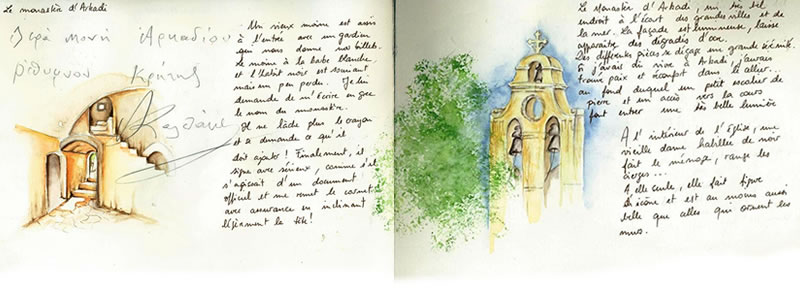 Le monastère d'Arkadi
Ιερά Μονή Αρκαδίου
Ρέθυμνον Κρήτης
Un vieux moine est assis
à l'entrée avec un gardien
qui nous donne nos billets.
Le moine à la barbe blanche
et l'habit noir est souriant
mais un peu perdu. Je lui
demande de m'écrire en grec
le nom du monastère.
Il ne lâche plus le crayon
et a demandé ce qu'il
doit ajouter! Finalement, il
signe avec sérieux, comme s'il
s'agissait d'un document
officiel et me remet le carnet
avec assurance en inclinant
légèrement la tête!
Le Monastère d'Arkadi, un très bel
endroit à l'écart des grandes villes et de
la mer. La façade est lumineuse, laisse
apparaître des dégradés d'ocre.
Des différentes pièces se dégage une grande sérénité.
Si j'avais dû vivre à Arkadi j'aurais
trouvé paix et réconfort dans le cellier...
au fond duquel un petit escalier de
pierre et un accès vers la cour
font entrer une très belle lumière
A l'intérieur de l'Eglise, une
vieille dame habillée de noir
fait le ménage, range les
cierges...
A elle seule, elle fait figure
d'icône et est au moins aussi
belle que celles qui ornent les
murs...